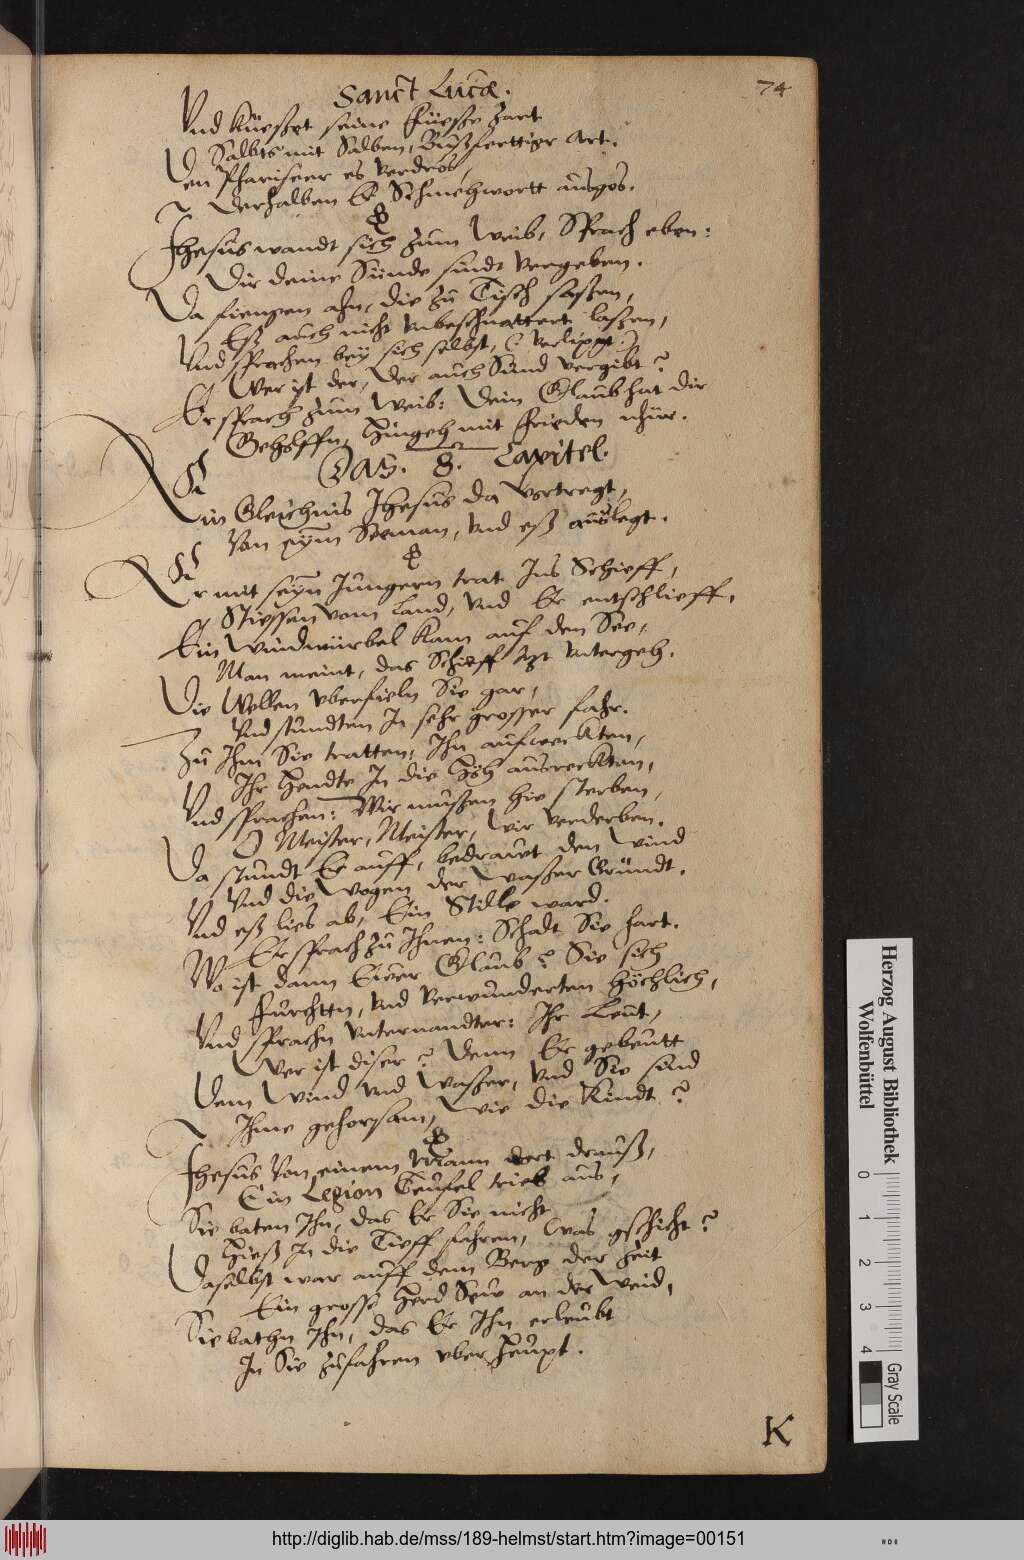 Sanct Lucæ.
74
Vnd Küeßet seine Füesse zart
Salbts mit Salben, Bußferttiger Art.
Den Phariseer es verdros,
Derhalben Er Schmehwortt ausgos.
Jhesus wandt sich zum Weib, Sprach eben:
Dir deine Sünde sindt vergeben.
Da fiengen ahn, die zu Tisch saßen,
Eß auch nicht vnbeschnattert laßen,
Vnd sprachen bey sich selbst,
Wer ist der, der auch Sünd vergibt?
Er sprach zum Weib: Dein Glaub hat dir
Geholffn, Hingeh mit Frieden
Das. 8. Capitel.
Ein Gleichnis Jhesus da vortregt,
Von eym Seeman, vnd eß auslegt.
Er mit seyn Jungern trat Ins Schieff,
Stiessen vom Land, vnd Er entschlieff,
Ein Windwürbel Kam auf den See,
Man meint, das Schieff itzt vntergeh.
Die Wellen vberfieln Sie gar,
Vnd stundten In sehr grosser fahr.
Zu Ihm Sie tratten, Ihn aufweckten,
Ihr Hendte In die Höh ausreckten,
Vnd sprachen: Wir mußen hie sterben,
O Meister, Meister, wir verderben.
Da stundt Er auff, bedrawt den Wind
Vnd die Wogen der Waßer Gründt.
Vnd eß lies ab, Ein Stille ward.
Er sprach zu Ihnen: Schadt Sie hart.
Wo ist dann Ewer Glaub? Sie sich
Furchttn, vnd verwunderten höchlich,
Vnd sprachn vnternandter: Ihr Leut,
Wer ist diser? Denn Er gebeutt
Dem Wind vnd Waßer, vnd Sie sind
Ihme gehorsam, wie die Kindt?
Jhesus von einem Mann dort drauß,
Ein Legion Teufel trieb aus,
Sie baten Ihn, das Er Sie nicht
Hieß In die Tieff fahren, was gschicht?
Daselbst war auff dem Berg der Zeit
Ein grosse Herd Sew an der Weid,
Sie bathn Ihn, das Er Ihn erleubt
In Sie zufahren vber Heupt.
K
Herzog August Bibliothek
Wolfenbüttel
0 1 2 3 4
Gray Scale
http://diglib.hab.de/mss/189-helmst/start.htm?image=00151